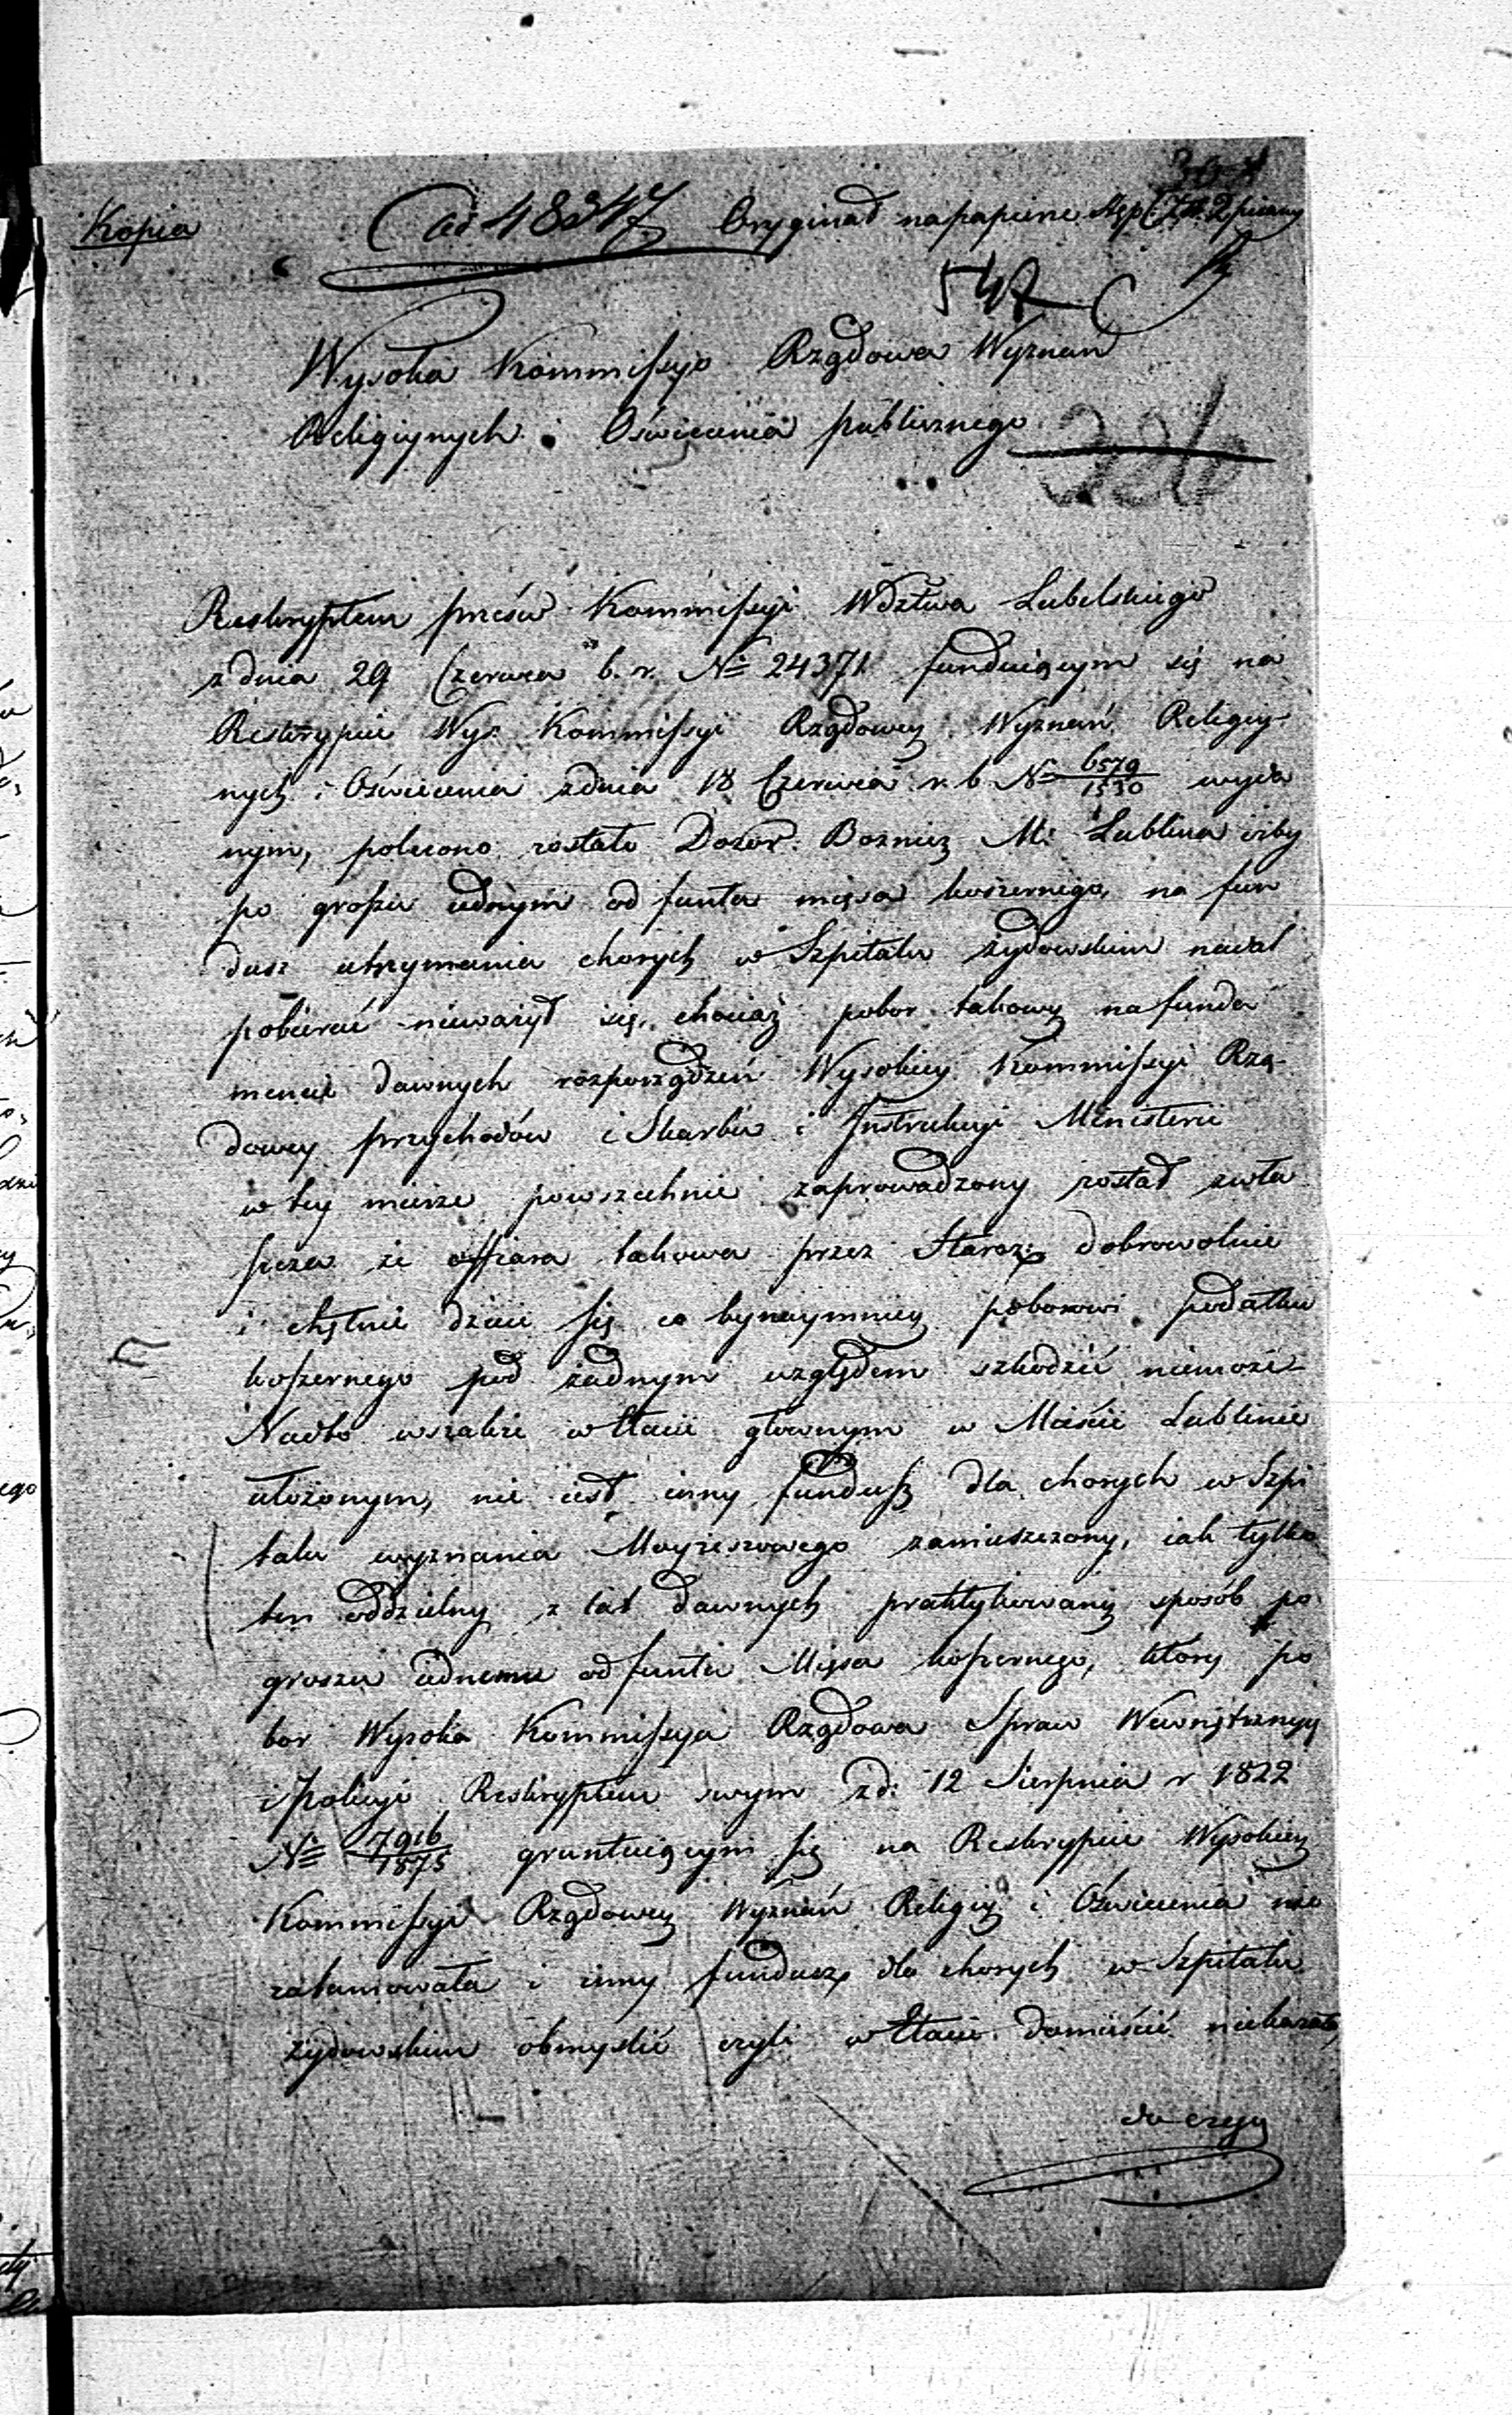 Kopia ad 48347 Oryginał na papierze Stęp: Zł. 2 pisany
547
Wysoka Kommissyo Rządowa Wyznań
Religiynych i Oświecenia publicznego
Reskryptem prześw Kommissyi Wdztwa Lubelskiego
z dnia 29 Czerwca b. r. № 24371 funduiącym się na
Reskrypcie Wys. Kommissyi Rządowey Wyznań Religiy-
nych i Oświecenia z dnia 18 Czerwca r. b № 6579/1530 wyda
nym, polecono zostało Dozor. Boznicz M. Lublina iżby
po groszu iednym od funta mięsa koszernego, na fun
dusz utrzymania chorych w Szpitalu żydowskim nadal
pobierać nieważył się, chociaż pobor takowy na funda
mencie dawnych rozporządzeń Wysokiey Kommissyi Rzą-
dowey przychodów i Skarbu i Instrukcyi Ministerii
w tey mierze powszechnie zaprowadzony został zwła
szcza że offiara takowa przez Staroz: dobrowolnie
i chętnie dzieie się co bynaymniey poborowi podatku
koszernego pod żadnym względem szkodzić niemoże-
Nadto wszakże w Etacie głownym w Mieście Lublinie
ułożonym, nie iest inny fundusz dla chorych w Szpi
talu wyznania Moyżeszowego zamieszczony, iak tylko
ten oddzielny z lat dawnych praktykowany sposób po
groszu iednemu od funta Mięsa koszernego, który po
bor Wysoka Kommissyia Rządowa Spraw Wewnętrznych
i Policyi Reskryptem swym z d: 12 Sierpnia r 1822
№ 7916/1875 gruntuiącym się na Reskrypcie Wysokiey
Kommissyi Rządowey Wyznań Religiy i Oświecenia nie
zatamowała i inny fundusz dla chorych w Szpitalu
żydowskim obmyślić czyli w Etacie domieścić niekazała,
do czego